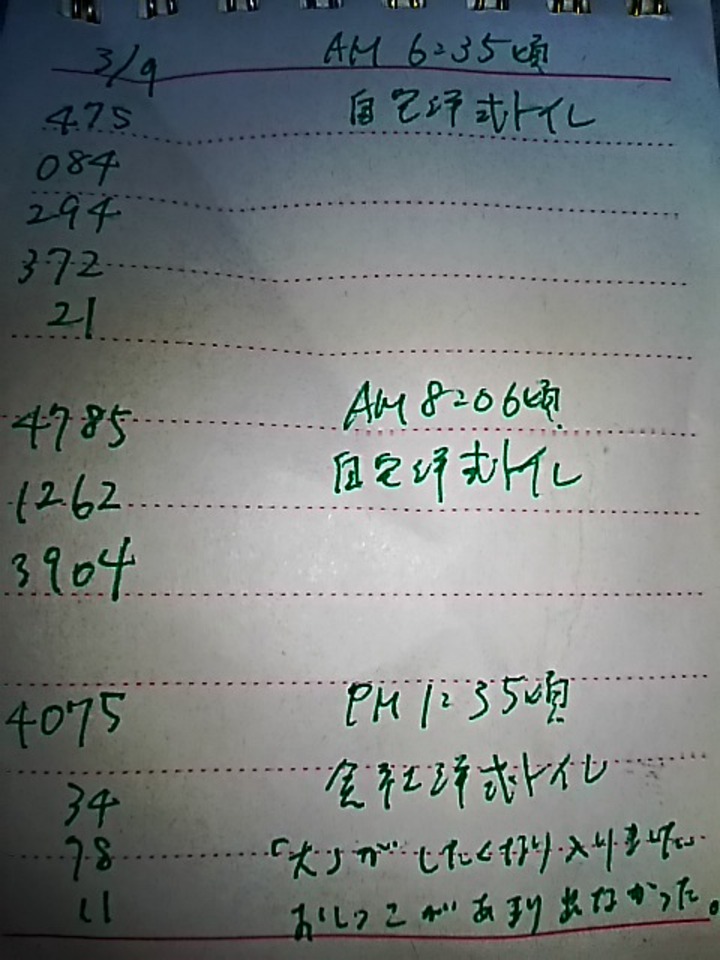 3/9 AM 6:35頃
475 自宅洋式トイレ
084
294
372
21
4785 AM 8:06頃
1262 自宅洋式トイレ
3904
4075 PM 1:35頃
34 会社洋式トイレ
78 「大」がしたくなり入りまして
11 おしっこがあまり出なかった。